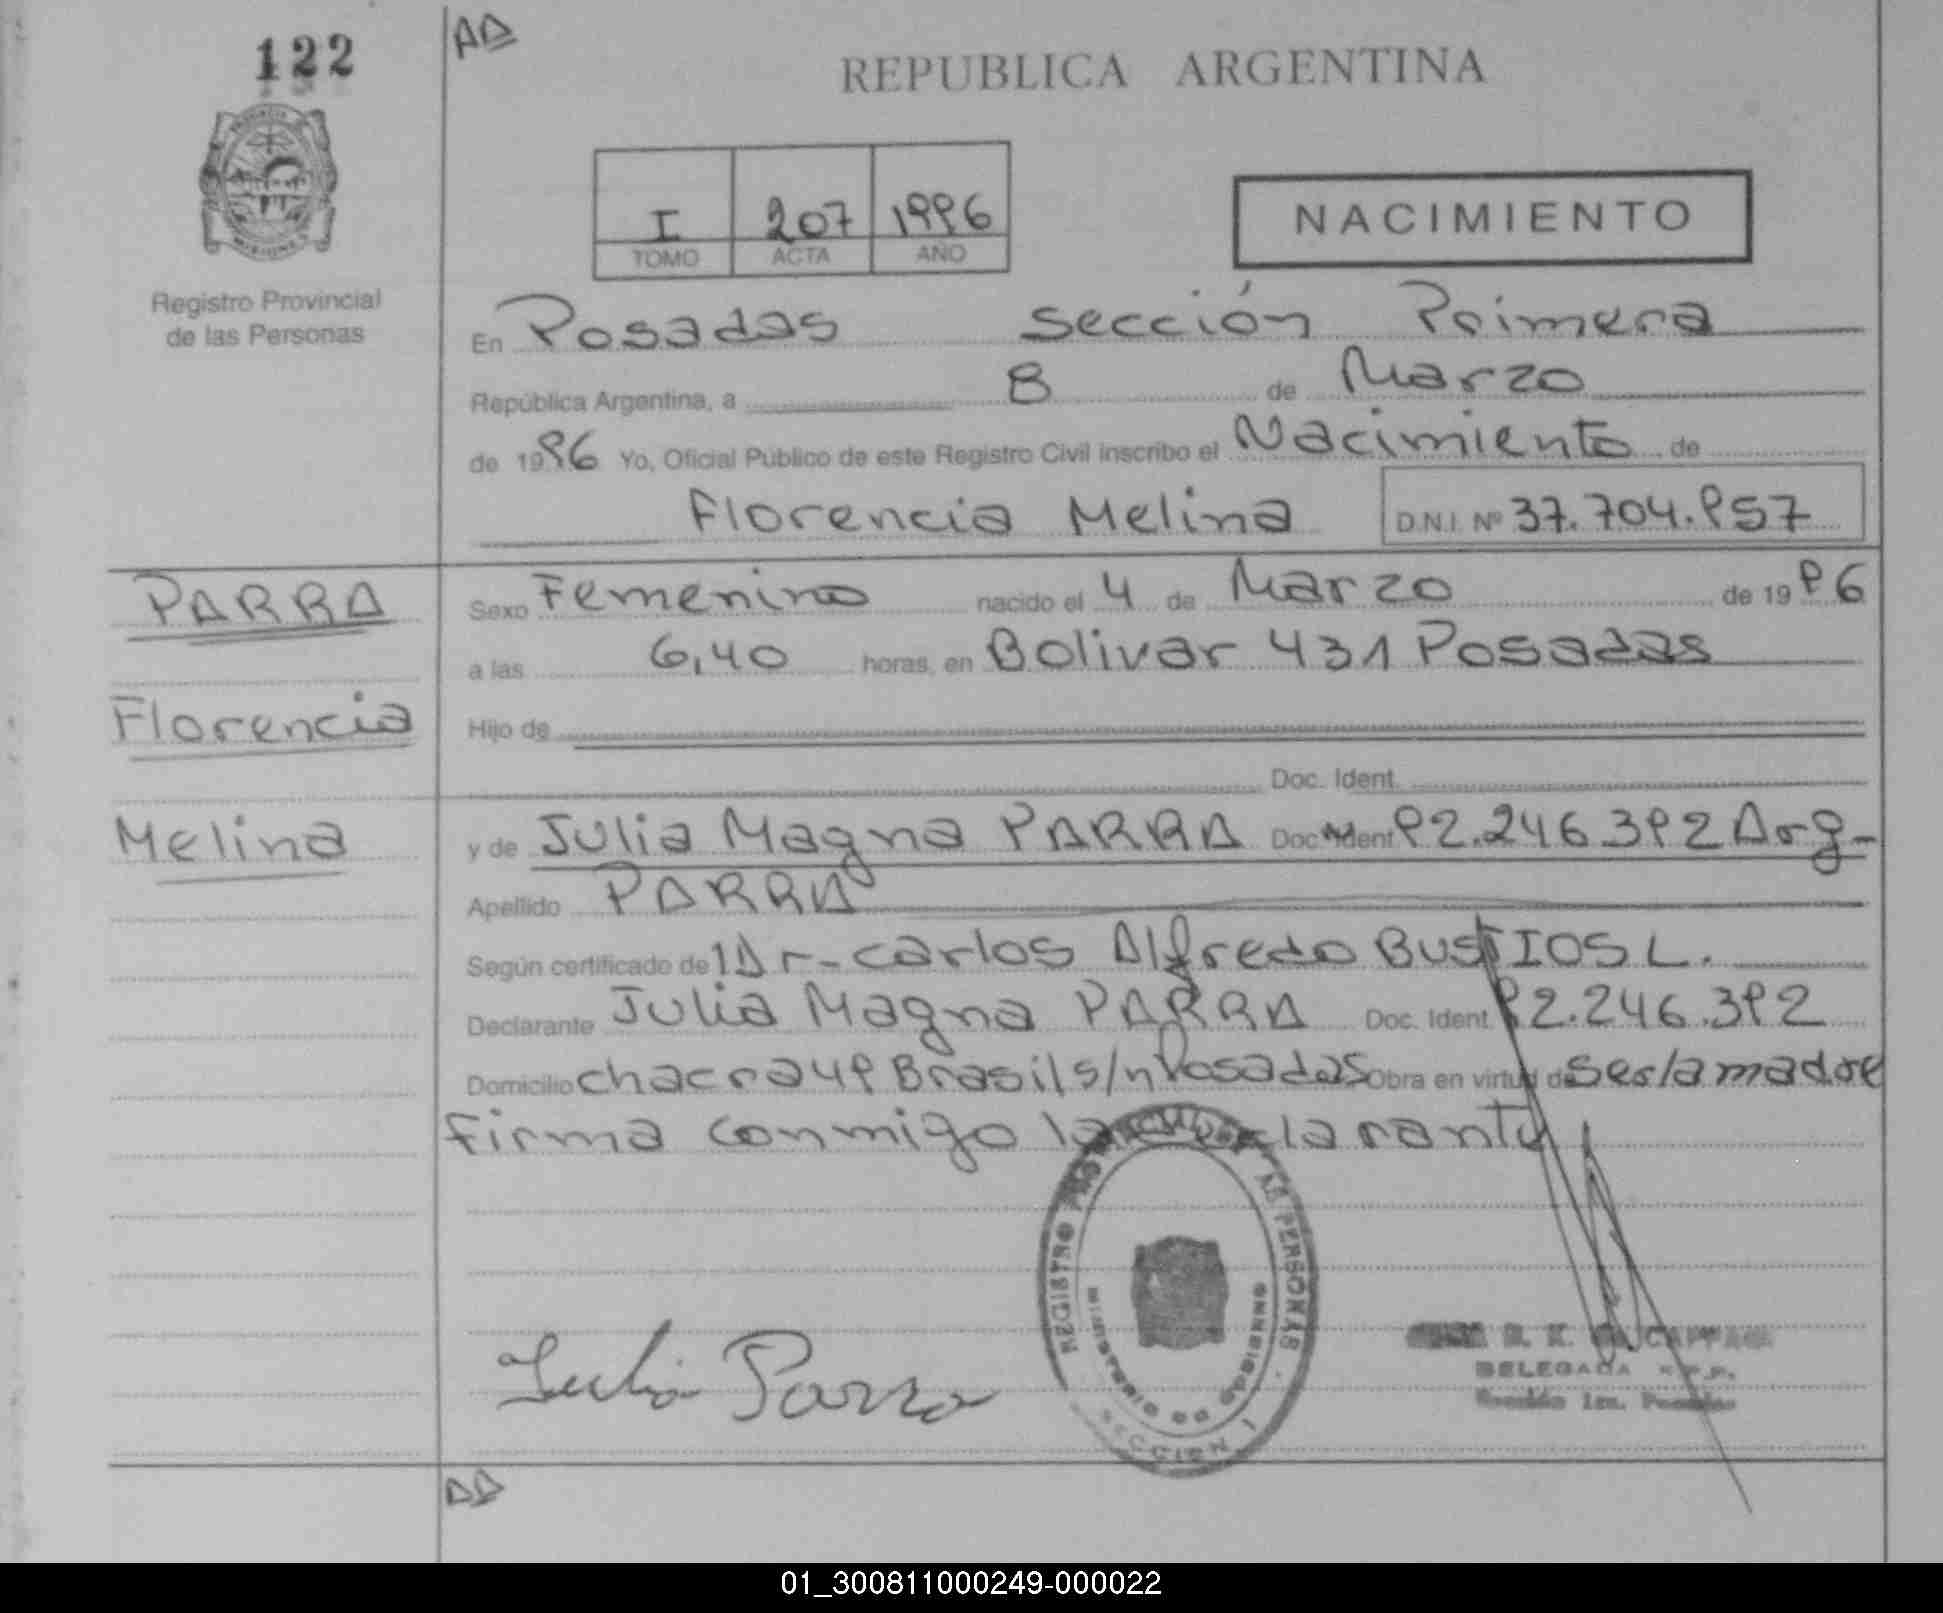 122
AD
REPUBLICA ARGENTINA
I 207 1996
TOMO ACTA AÑO
NACIMIENTO
Registro Provincial
de las Personas
En Posadas sección Primera
República Argentina, a 8 de Marzo
de 1996 Yo, Oficial Público de este Registro Civil inscribo el Nacimiento de
Florencia Melina D.N.I. Nº 37.704.957
PARRA
Florencia
Melina
Sexo Femenino nacido el 4 de Marzo de 1996
a las 6,40 horas, en Bolivar 431 Posadas
Hijo de
Doc. Ident.
y de Julia Magna PARRA Doc. Ident. 92.246.392 Arg-
Apellido PARRA
Según certificado de 1 Dr- carlos Alfredo BUSTIOS L.
Declarante Julia Magna PARRA Doc. Ident. 92.246.392
Domicilio chacra 49 Brasil s/n Posadas Obra en virtud de Ser la madre
Firma conmigo la declarante
REGISTRO PERSONAS
SECCION I
Julia Parra
DELEGADA R.P.P.
Sección 1ra. Posadas
01_300811000249-000022